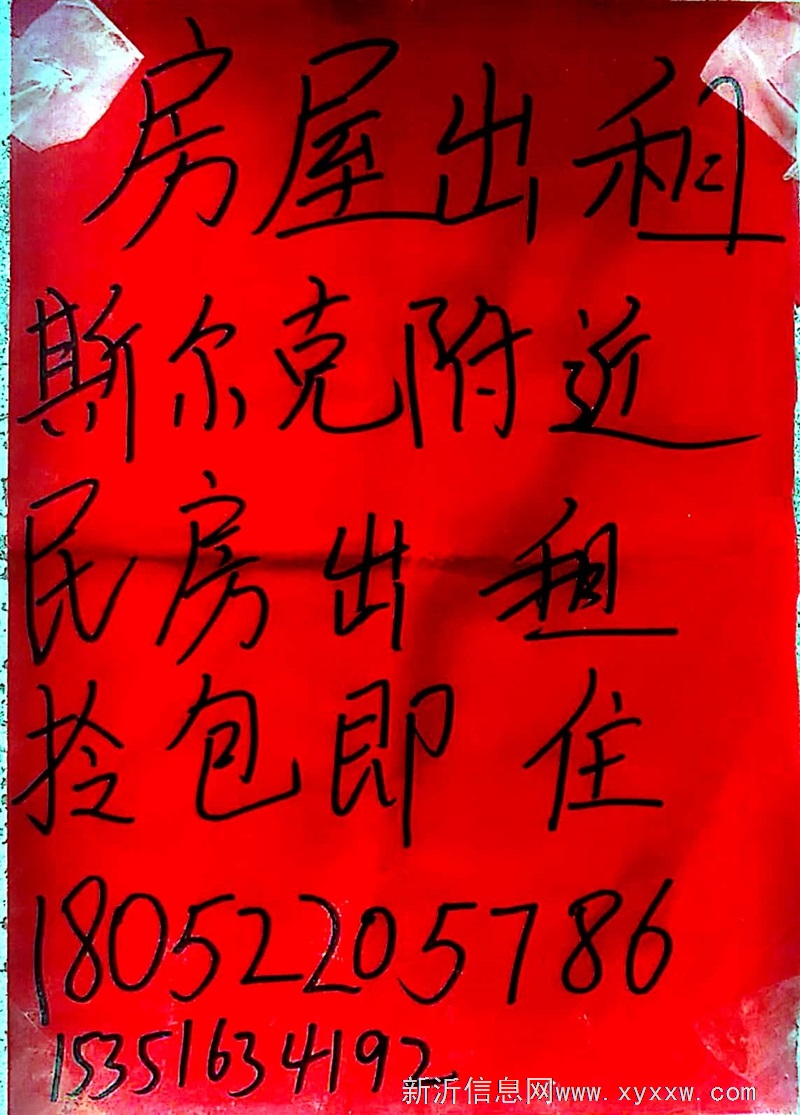 房屋出租
斯尔克附近
民房出租
拎包即住
18052205786
15351634192
新沂信息网www.xyxxw.com